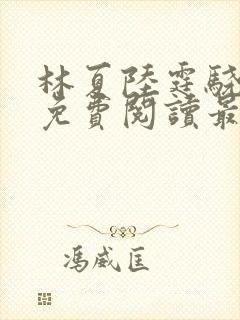 林夏陸霆驍
免費閱讀最
馮威匡